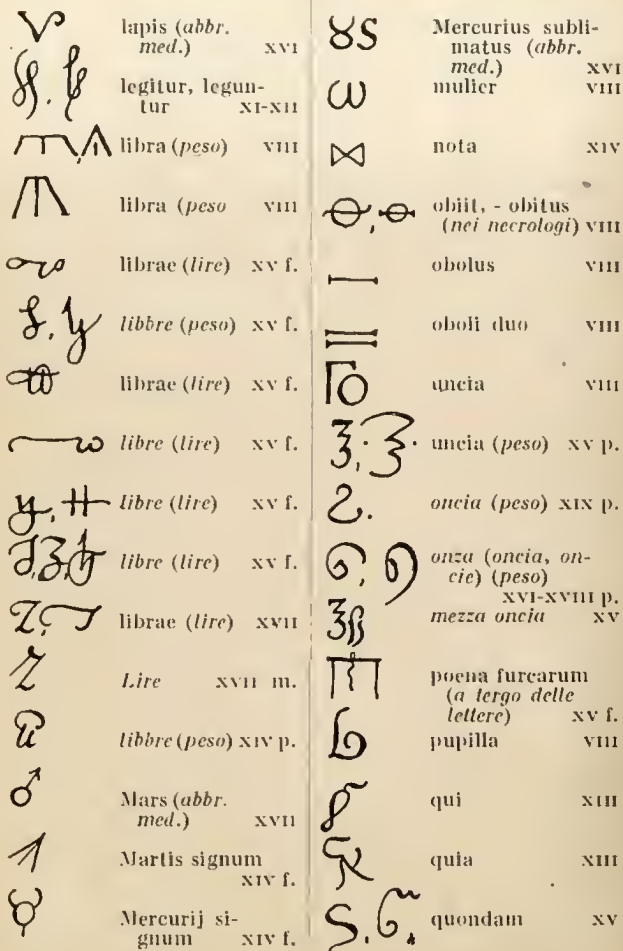 lapis (abbr.
med.) XVI
legitur, legun-
tur XI-XII
libra (peso) VIII
libra (peso VIII
librae (lire) XV f.
libbre (peso) XV f.
librae (lire) XV f.
libre (lire) XV f.
libre (lire) XV f.
libre (lire) XV f.
librae (lire) XVII
Lire XVII m.
libbre (peso) XIV p.
♂ Mars (abbr.
med.) XVII
Martis signum
XIV f.
Mercurij si-
gnum XIV f.
Mercurius subli-
matus (abbr.
med.) XVI
mulier VIII
nota XIV
obiit, - obitus
(nei necrologi) VIII
obolus VIII
oboli duo VIII
uncia VIII
uncia (peso) XV p.
oncia (peso) XIX p.
onza (oncia, on-
cie) (peso)
XVI-XVIII p.
mezza oncia XV
poena furcarum
(a tergo delle
lettere) XV f.
pupilla VIII
qui XIII
quia XIII
quondam XV